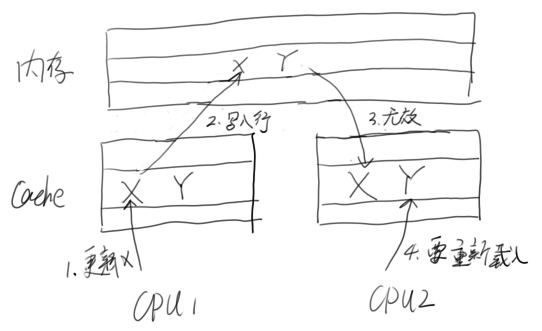 内存
X Y
2.写入行
3.无效
Cache
X Y
X Y
1.更新X
4.要重新载入
CPU1
CPU2